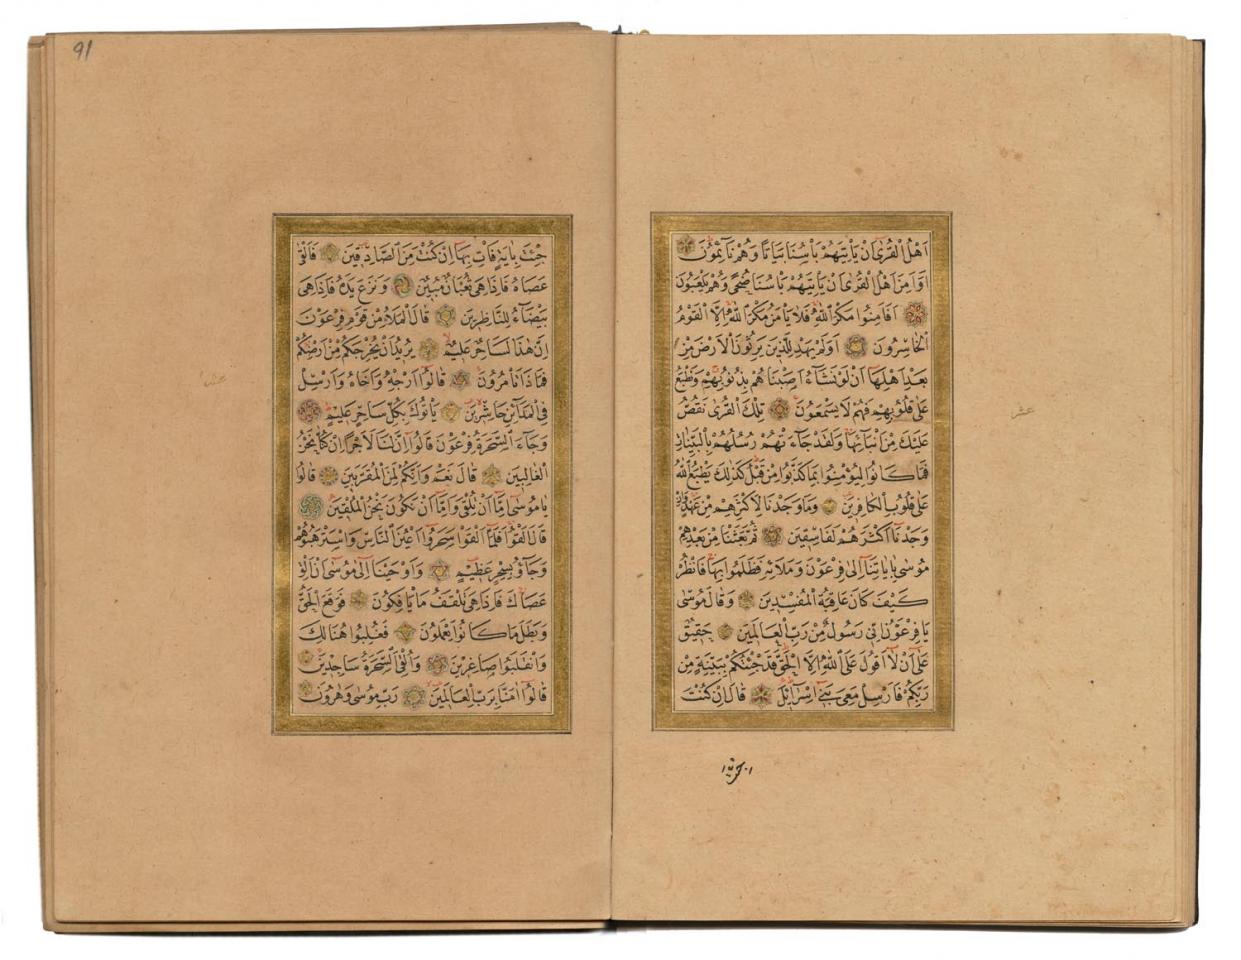 اَهْلُ الْقُرٰٓى اَنْ يَأْتِيَهُمْ بَأْسُنَا بَيَاتًا وَهُمْ نَآئِمُونَ
اَوَاَمِنَ اَهْلُ الْقُرٰٓى اَنْ يَأْتِيَهُمْ بَأْسُنَا ضُحًى وَهُمْ يَلْعَبُونَ
اَفَاَمِنُوا مَكْرَ اللّٰهِ فَلَا يَأْمَنُ مَكْرَ اللّٰهِ اِلَّا الْقَوْمُ
الْخَاسِرُونَ اَوَلَمْ يَهْدِ لِلَّذِينَ يَرِثُونَ الْاَرْضَ مِنْ
بَعْدِ اَهْلِهَٓا اَنْ لَوْ نَشَٓاءُ اَصَبْنَاهُمْ بِذُنُوبِهِمْ وَنَطْبَعُ
عَلٰى قُلُوبِهِمْ فَهُمْ لَا يَسْمَعُونَ تِلْكَ الْقُرٰى نَقُصُّ
عَلَيْكَ مِنْ اَنْبَٓائِهَا وَلَقَدْ جَٓاءَتْهُمْ رُسُلُهُمْ بِالْبَيِّنَاتِ
فَمَا كَانُوا لِيُؤْمِنُوا بِمَا كَذَّبُوا مِنْ قَبْلُ كَذٰلِكَ يَطْبَعُ اللّٰهُ
عَلٰى قُلُوبِ الْكَافِرِينَ وَمَا وَجَدْنَا لِاَكْثَرِهِمْ مِنْ عَهْدٍ وَاِنْ
وَجَدْنَٓا اَكْثَرَهُمْ لَفَاسِقِينَ ثُمَّ بَعَثْنَا مِنْ بَعْدِهِمْ
مُوسٰى بِاٰيَاتِنَٓا اِلٰى فِرْعَوْنَ وَمَلَائِهِ فَظَلَمُوا بِهَا فَانْظُرْ
كَيْفَ كَانَ عَاقِبَةُ الْمُفْسِدِينَ وَقَالَ مُوسٰى
يَا فِرْعَوْنُ اِنِّى رَسُولٌ مِنْ رَبِّ الْعَالَمِينَ حَقِيقٌ
عَلٰٓى اَنْ لَٓا اَقُولَ عَلَى اللّٰهِ اِلَّا الْحَقَّ قَدْ جِئْتُكُمْ بِبَيِّنَةٍ مِنْ
رَبِّكُمْ فَاَرْسِلْ مَعِىَ بَنِٓى اِسْرَٓائِلَ قَالَ اِنْ كُنْتَ
عشر
91
جِئْتَ بِاٰيَةٍ فَأْتِ بِهَٓا اِنْ كُنْتَ مِنَ الصَّادِقِينَ فَاَلْقٰى
عَصَاهُ فَاِذَا هِىَ ثُعْبَانٌ مُبِينٌ وَنَزَعَ يَدَهُ فَاِذَا هِىَ
بَيْضَٓاءُ لِلنَّاظِرِينَ قَالَ الْمَلَاُ مِنْ قَوْمِ فِرْعَوْنَ
اِنَّ هٰذَا لَسَاحِرٌ عَلِيمٌ يُرِيدُ اَنْ يُخْرِجَكُمْ مِنْ اَرْضِكُمْ
فَمَاذَا تَأْمُرُونَ قَالُٓوا اَرْجِهْ وَاَخَاهُ وَاَرْسِلْ
فِى الْمَدَٓائِنِ حَاشِرِينَ يَأْتُوكَ بِكُلِّ سَاحِرٍ عَلِيمٍ
وَجَٓاءَ السَّحَرَةُ فِرْعَوْنَ قَالُٓوا اِنَّ لَنَا لَاَجْرًا اِنْ كُنَّا نَحْنُ
الْغَالِبِينَ قَالَ نَعَمْ وَاِنَّكُمْ لَمِنَ الْمُقَرَّبِينَ قَالُوا
يَا مُوسٰٓى اِمَّٓا اَنْ تُلْقِىَ وَاِمَّٓا اَنْ نَكُونَ نَحْنُ الْمُلْقِينَ
قَالَ اَلْقُوا فَلَمَّٓا اَلْقَوْا سَحَرُٓوا اَعْيُنَ النَّاسِ وَاسْتَرْهَبُوهُمْ
وَجَٓاؤُ بِسِحْرٍ عَظِيمٍ وَاَوْحَيْنَٓا اِلٰى مُوسٰٓى اَنْ اَلْقِ
عَصَاكَ فَاِذَا هِىَ تَلْقَفُ مَا يَأْفِكُونَ فَوَقَعَ الْحَقُّ
وَبَطَلَ مَا كَانُوا يَعْمَلُونَ فَغُلِبُوا هُنَالِكَ
وَانْقَلَبُوا صَاغِرِينَ وَاُلْقِىَ السَّحَرَةُ سَاجِدِينَ
قَالُٓوا اٰمَنَّا بِرَبِّ الْعَالَمِينَ رَبِّ مُوسٰى وَهٰرُونَ
عشر